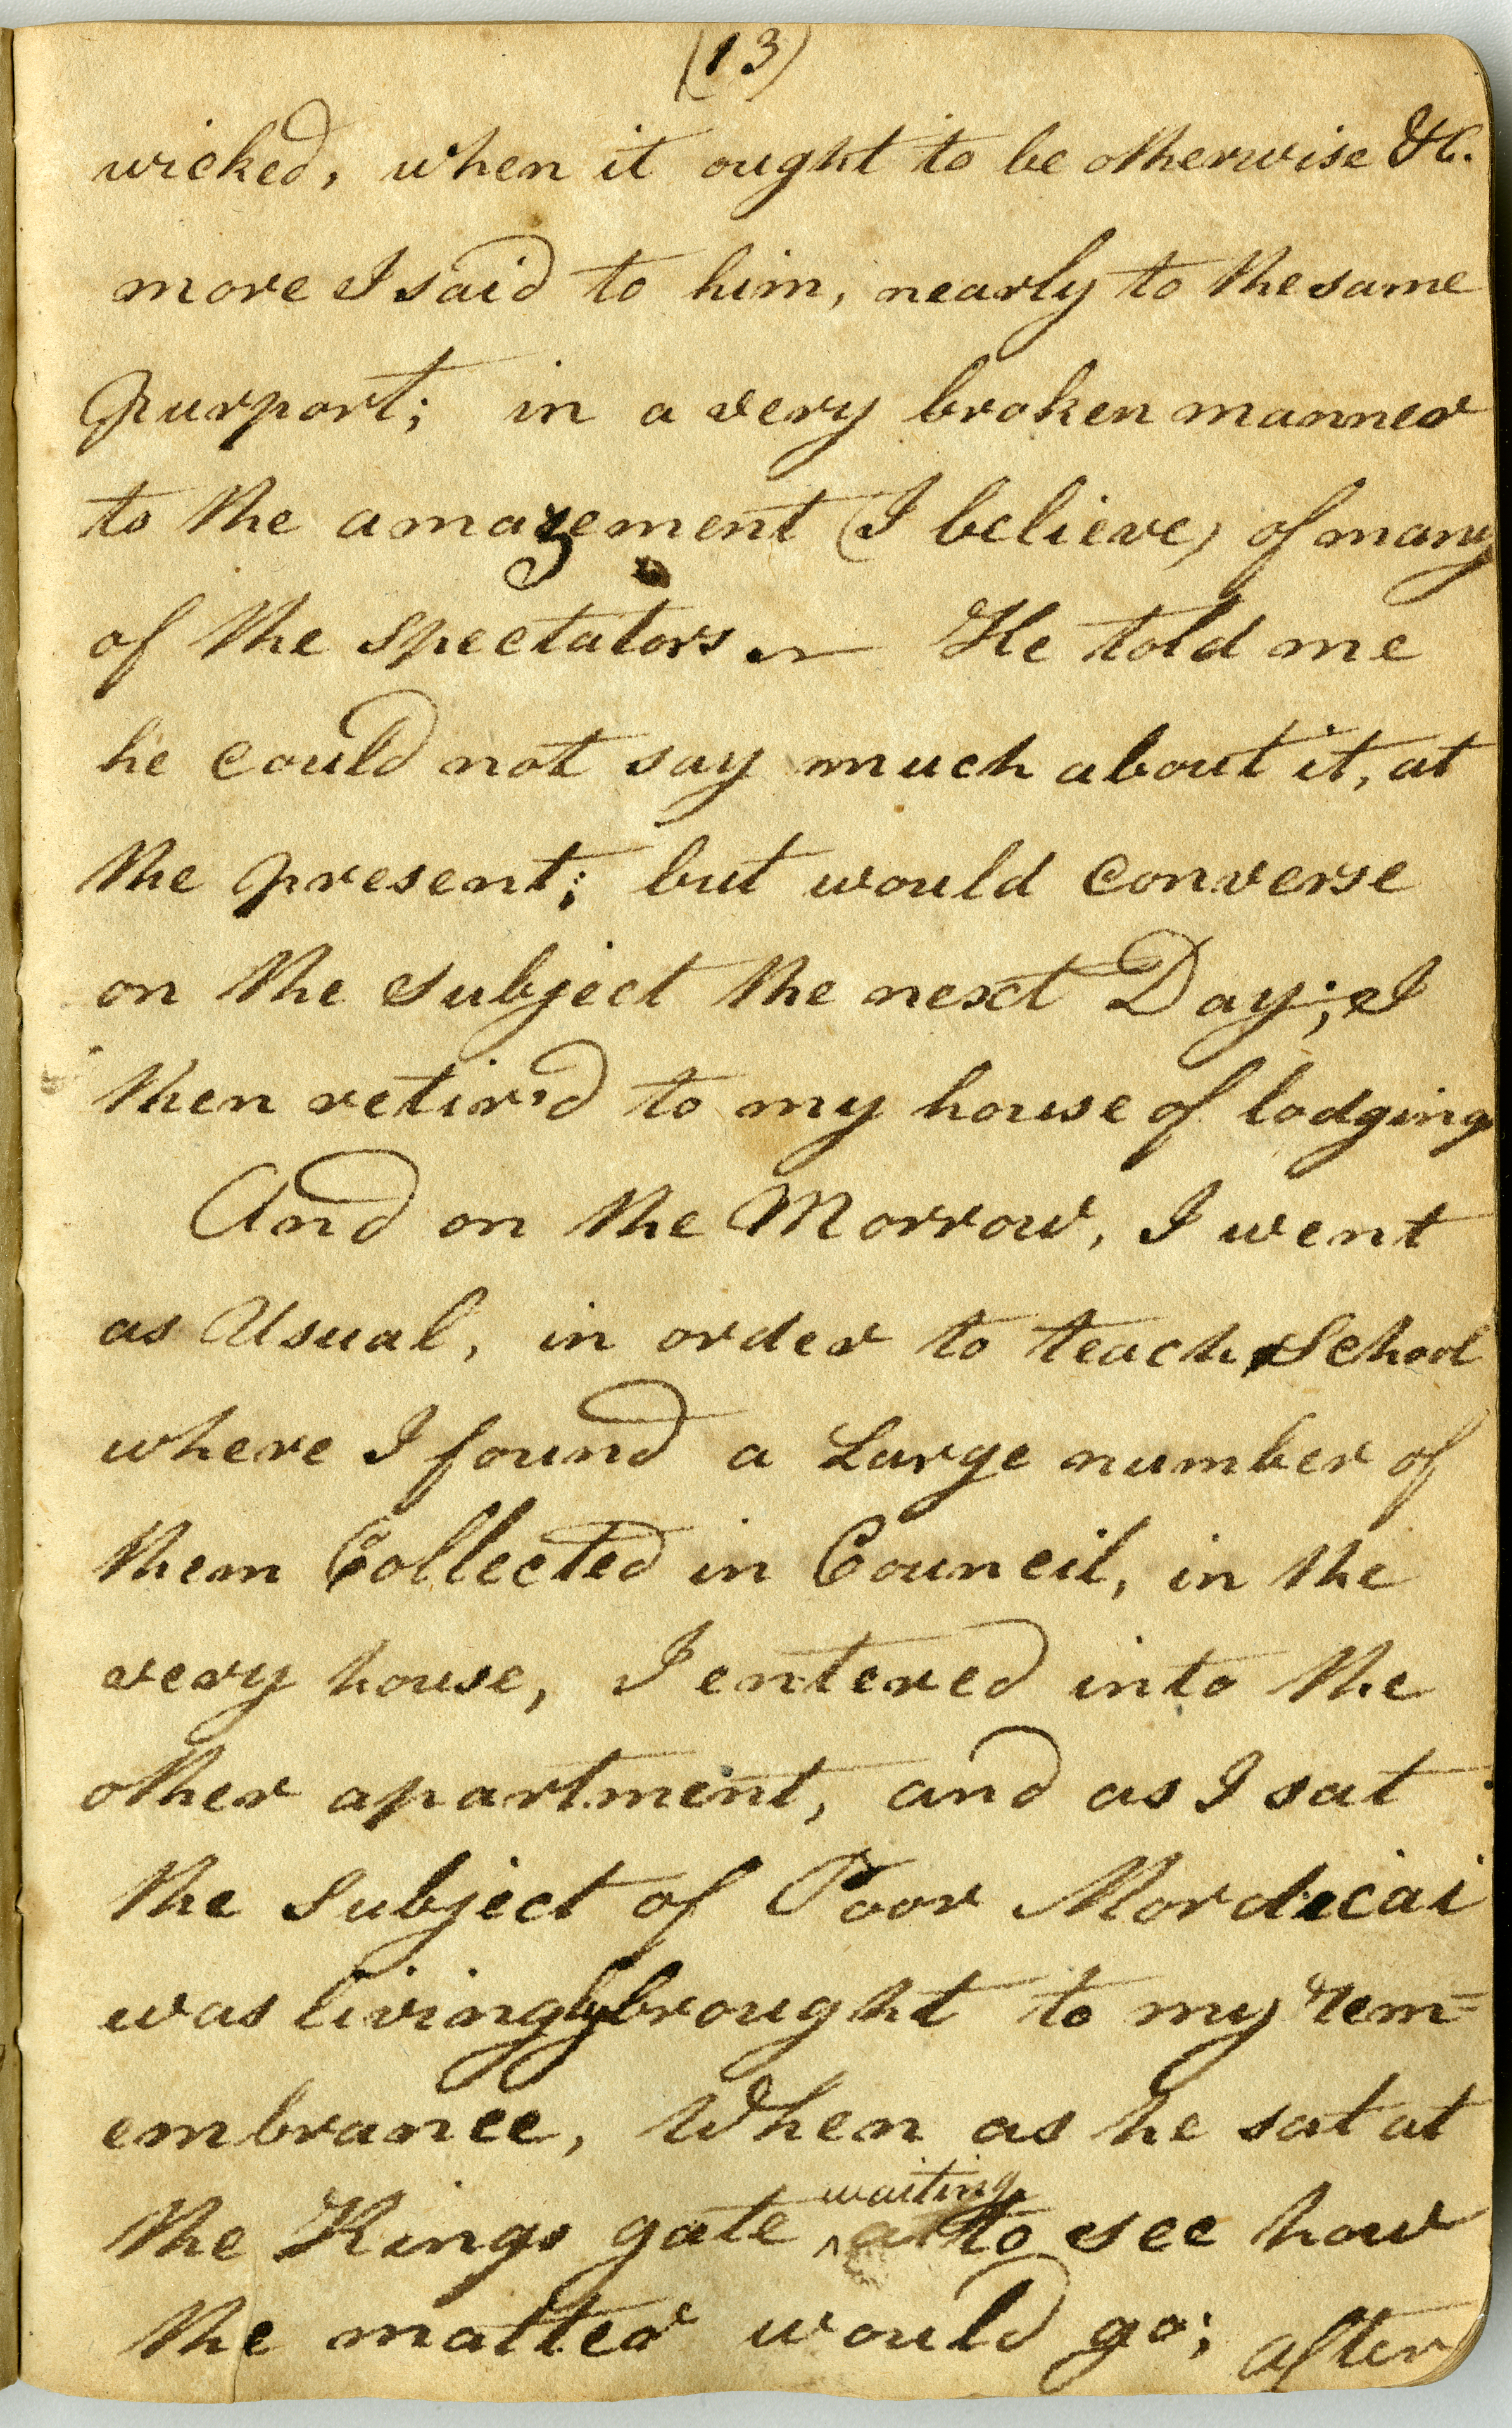 (13)
wicked, when it ought to be otherwise &C.
more I said to him, nearly to the same
purport; in a very broken manner
to the amazement (I believe) of many
of the spectators. — He told me
he could not say much about it, at
the present; but would converse
on the subject the next Day; I
then retir'd to my house of lodging
And on the Morrow, I went
as Usual, in order to teach School
where I found a Large number of
them Collected in Council, in the
very house, I entered into the
other apartment, and as I sat
the Subject of Poor Mordicai
was livingly brought to my rem=
embrance, When as he sat at
waiting
the Kings gate ^ to see how
the matter would go; after